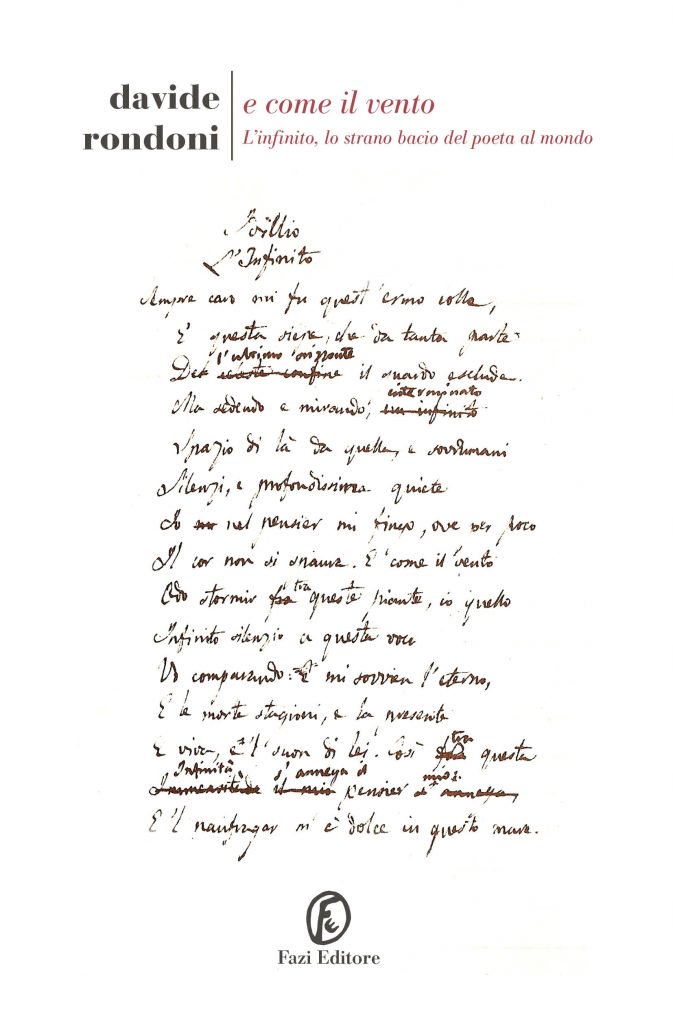 davide
rondoni
e come il vento
L'infinito, lo strano bacio del poeta al mondo
Idillio
L'Infinito
Sempre caro mi fu quest'ermo colle,
E questa siepe, che da tanta parte
l'ultimo orizzonte
Del celeste confine il guardo esclude.
interminato
Ma sedendo e mirando, un infinito
Spazio di là da quella, e sovrumani
Silenzi, e profondissima quiete
Io nel pensier mi fingo, ove per poco
Il cor non si spaura. E come il vento
tra
Odo stormir fra queste piante, io quello
Infinito silenzio a questa voce
Vo comparando: E mi sovvien l'eterno,
E le morte stagioni, e la presente
tra
E viva, e 'l suon di lei. Così fra questa
Infinità s'annega il mio:
Immensitade il mio pensier s'annega,
E 'l naufragar m'è dolce in questo mare.
Fazi Editore